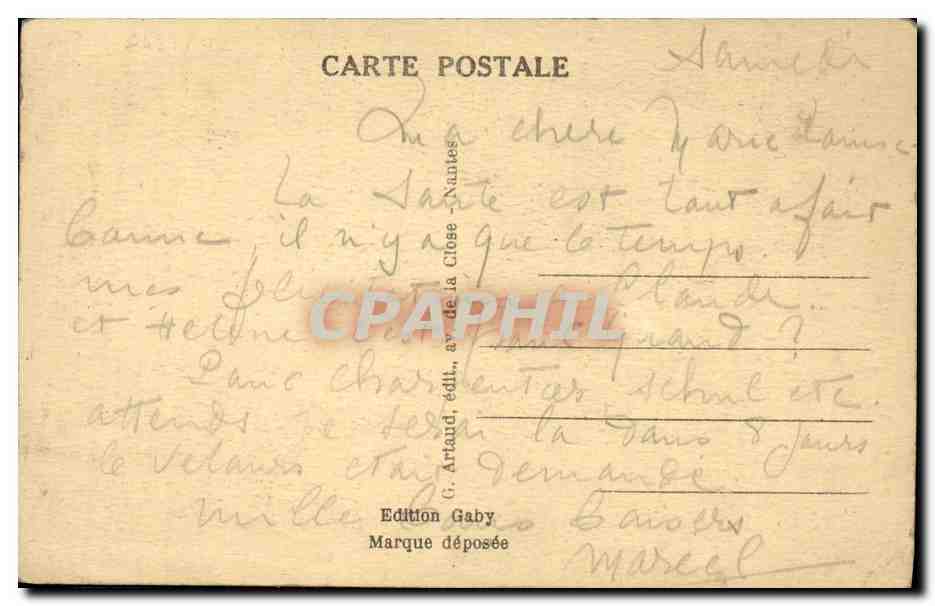 CARTE POSTALE
Samedi
Ma chere Marie Louise
La Santé est tout a fait
bonne, il n'y a que le temps.
mes Claude..
et Helene grand ?
Charpentier, etc.
attends je serai la dans 8 jours
le velours etait demandé
mille bons baisers
Marcel
G. Artaud, édit., av. de la Close - Nantes
CPAPHIL
Edition Gaby
Marque déposée